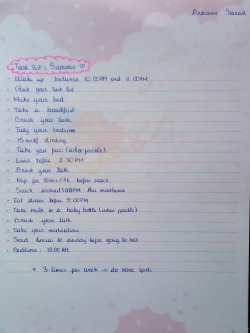 Princess Sarah
Task list : Summer
- Wake up between 10.00AM and 11.00AM
- Check your task list
- Make your bed
- Take a breakfast
- Brush your teeth
- Tidy your bedroom
- Take your paci (when possible)
- Lunch before 2:30 PM
- Brush your teeth
- Nap for 30min/1h before snack
- Snack around
- Eat dinner before 9:00PM
- Take milk in a baby bottle (when possible)
- Brush your teeth
- Take your medications
- Send to daddy before going to bed
- Bedtime : 12:00AM
+ 3 times per week → do some sports